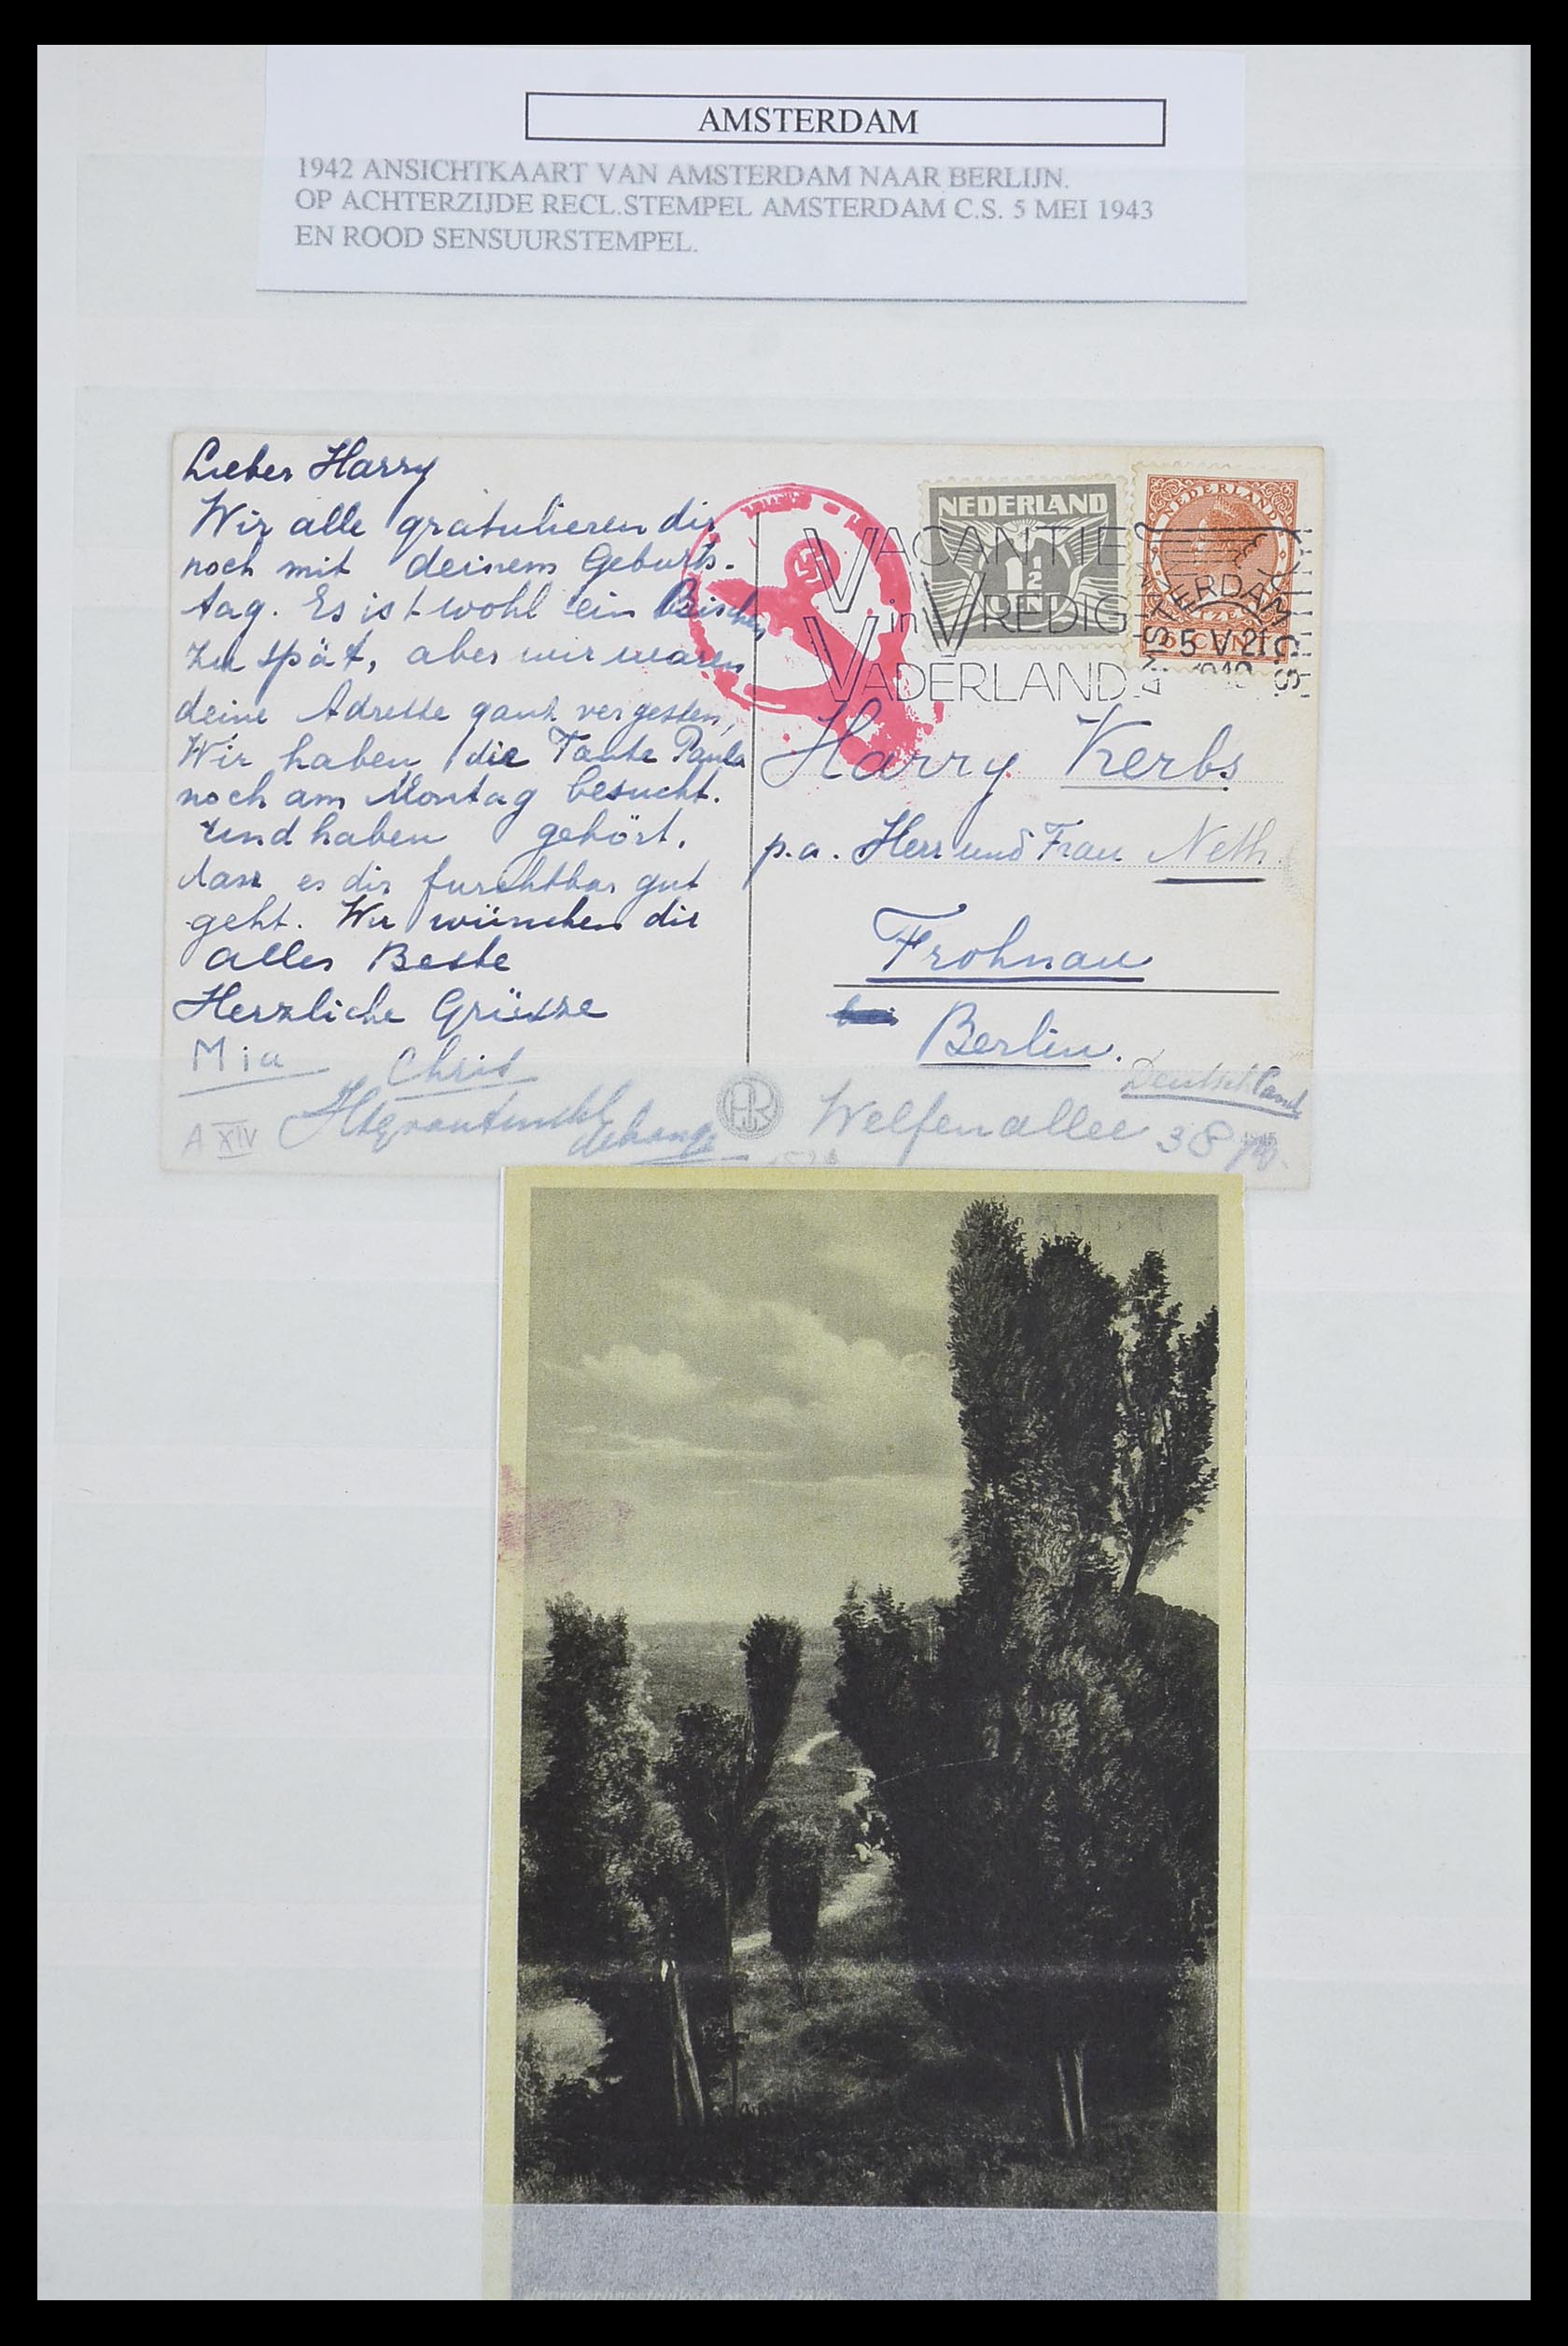 AMSTERDAM
1942 ANSICHTKAART VAN AMSTERDAM NAAR BERLIJN.
OP ACHTERZIJDE RECL.STEMPEL AMSTERDAM C.S. 5 MEI 1943
EN ROOD SENSUURSTEMPEL.
Lieber Harry
Wir alle gratulieren dir
noch mit deinem Geburts-
tag. Es ist wohl ein Bischen
zu spät, aber wir waren
deine Adresse ganz vergessen,
Wir haben die Tante Paula
noch am Montag besucht.
und haben gehört,
dass es dir furchtbar gut
geht. Wir wünschen dir
alles Beste
Herzliche Grüsse
Mia Chris
A XIV
NEDERLAND
1½
CENT
NEDERLAND
CENT
VACANTIE?
in VREDIG
VADERLAND
AMSTERDAM C.S.
5 V 21
Harry Kerbs
p.a. Herr und Frau Neth.
Frohnau
Berlin.
Deutschland
Welfenallee 38